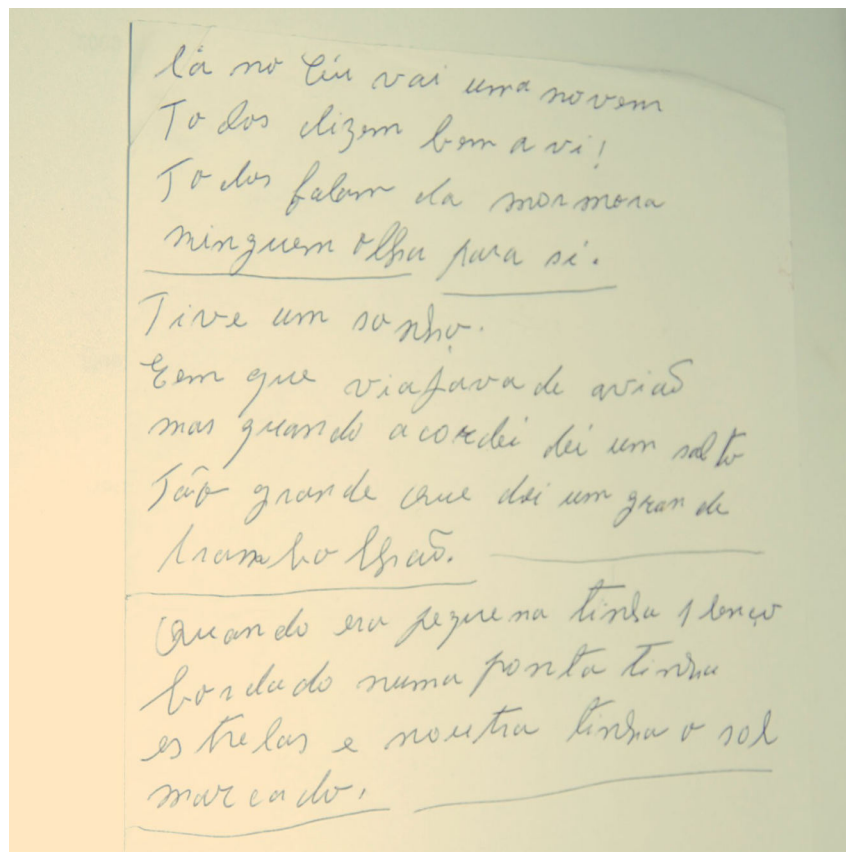 lá no Céu vai uma novem
Todos dizem bem a vi!
Todos falam da mormora
ninguem olha para si.
Tive um sonho.
Eem que viajava de avião
mas quando acordei dei um salto
Tão grande que dei um grande
trambolhão.
Quando era pequena tinha 1 lenço
bordado numa ponta tinha
estrelas e noutra tinha o sol
marcado.